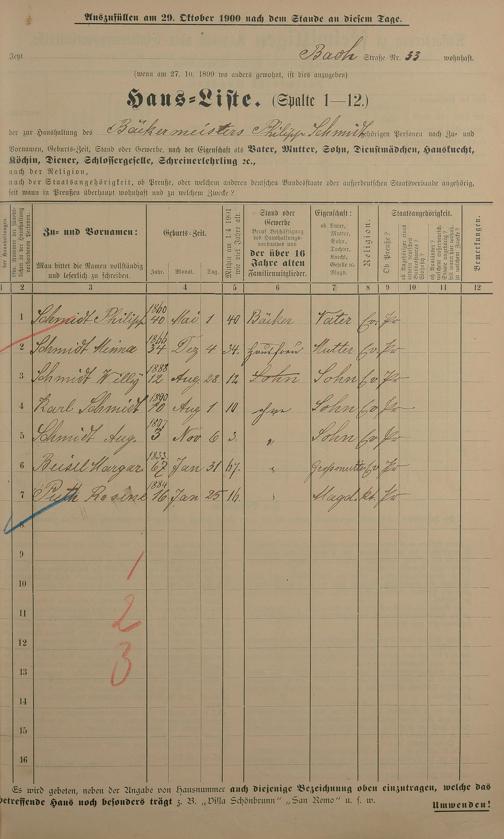 Auszufüllen am 29. Oktober 1900 nach dem Stande an diesem Tage.
Jetzt Bach Straße Nr. 33 wohnhaft.
(wenn am 27. 10. 1899 wo anders gewohnt, ist dies anzugeben)
Haus=Liste. (Spalte 1—12.)
der zur Haushaltung des Bäckermeisters Philipp Schmidt hörigen Personen nach Zu= und
Vornamen, Geburts=Zeit, Stand oder Gewerbe, nach der Eigenschaft als Vater, Mutter, Sohn, Dienstmädchen, Hausknecht,
Köchin, Diener, Schlossergeselle, Schreinerlehrling ꝛc.,
nach der Religion,
nach der Staatsangehörigkeit, ob Preuße, oder welchem anderen deutschen Bundesstaate oder außerdeutschen Staatsverbande angehörig,
seit wann in Preußen überhaupt wohnhaft und zu welchem Zwecke?
Zu= und Vornamen:
Man bittet die Namen vollständig und leserlich zu schreiben.
Geburts=Zeit.
Jahr. Monat. Tag.
Mithin am 1/4 1901 wie viel Jahre alt.
Stand oder Gewerbe
der über 16 Jahre alten Familienmitglieder.
Eigenschaft:
ob Vater, Mutter, Sohn, Tochter, Knecht, Geselle ꝛc. Magd.
Religion.
Staatsangehörigkeit.
Ob Preuße?
Bemerkungen.
1 2 3 4 5 6 7 8 9 10 11 12
1 Schmidt Philipp 1860 40 Mai 1 40 Bäcker Vater Ev. Pr
2 Schmidt Minna 1866 34 Dez 4 34. Hausfrau Mutter Ev Pr
3 Schmidt Willy 1888 12 Aug. 28. 12 Sohn Sohn Ev Pr
4 Karl Schmidt 1890 10 Aug 1 10 ohne Sohn Ev Pr
5 Schmidt Aug. 1897 3 Nov 6 3. " Sohn Ev Pr
6 Beisel Margar 1833 67 Jan 31 67. " Großmutter Ev Pr
7 Puth Rosine 1884 16 Jan 25 16. " Magd kt. Pr
8
9
10
11
12
13
14
15
16
1
2
3
Es wird gebeten, neben der Angabe von Hausnummer auch diejenige Bezeichnung oben einzutragen, welche das
betreffende Haus noch besonders trägt z. B. „Villa Schönbrunn" „San Remo" u. s. w.
Umwenden!